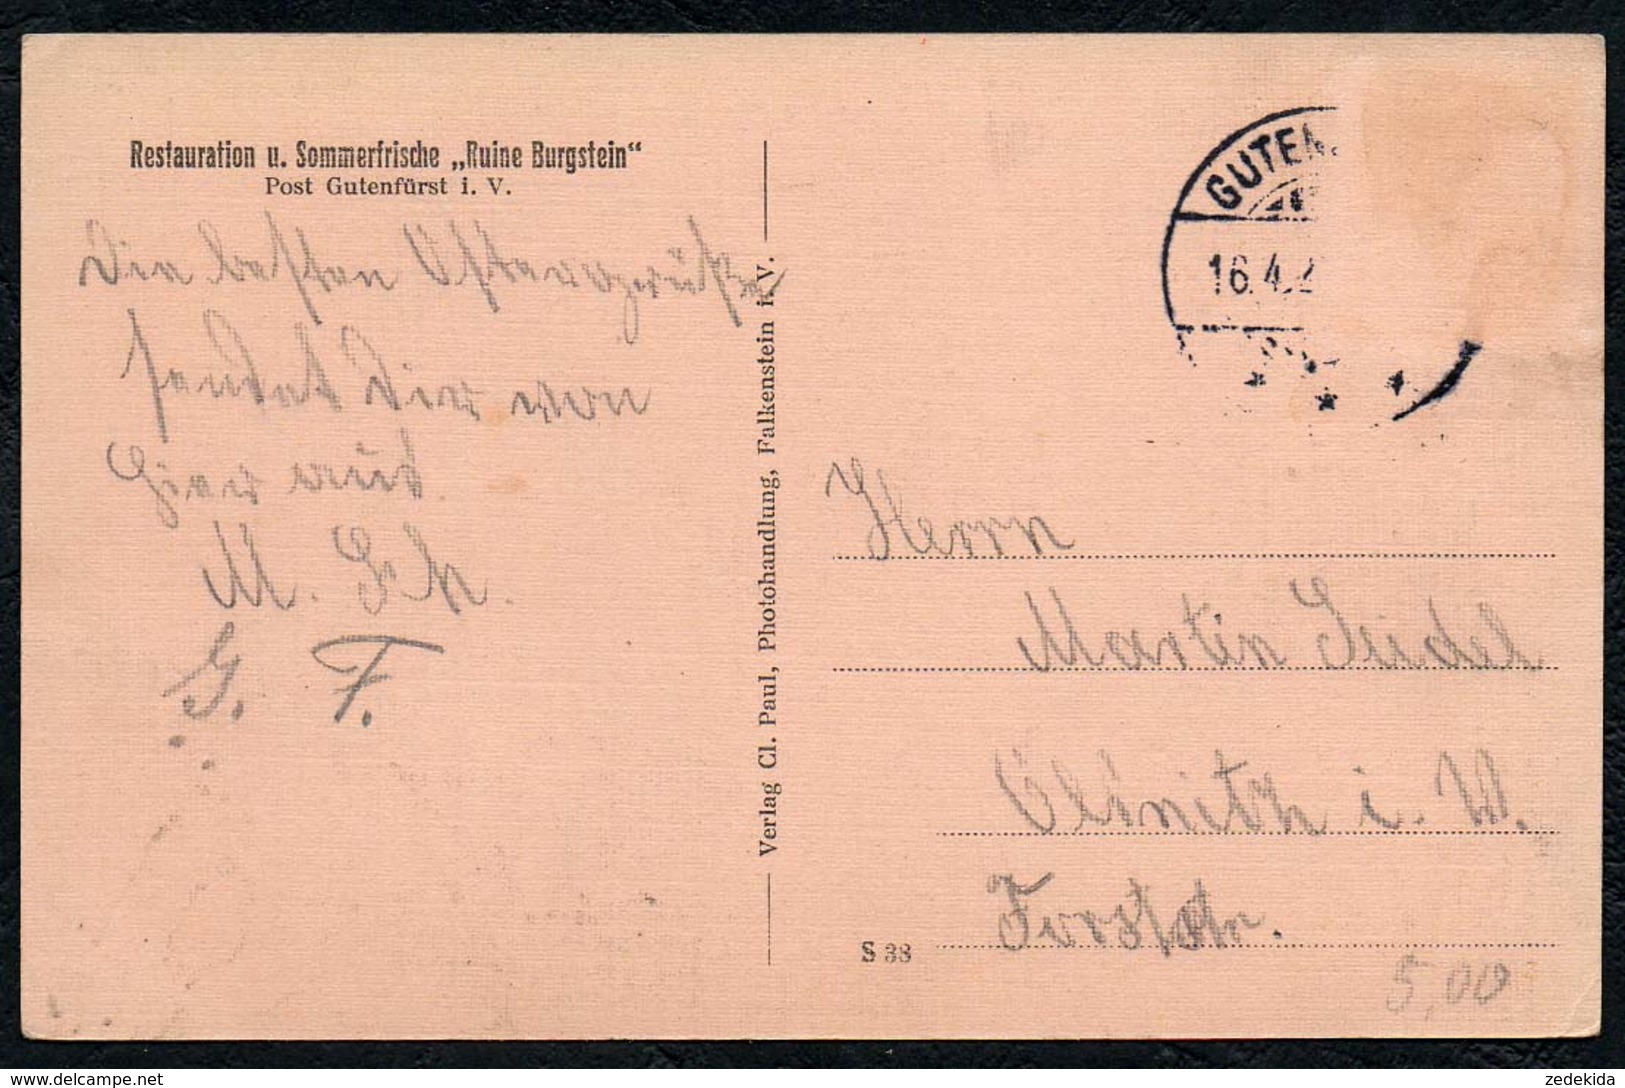 Restauration u. Sommerfrische „Ruine Burgstein“
Post Gutenfürst i. V.
Die besten Ostergrüße
sendet Dir von
hier aus
M. Sch.
G. F.
Verlag Cl. Paul, Photohandlung, Falkenstein i. V.
GUTEN
16.4.2
Herrn
Martin Seidel
Ölsnitz i. V.
Forststr.
S 38
5,00
zedekida
delcampe.net